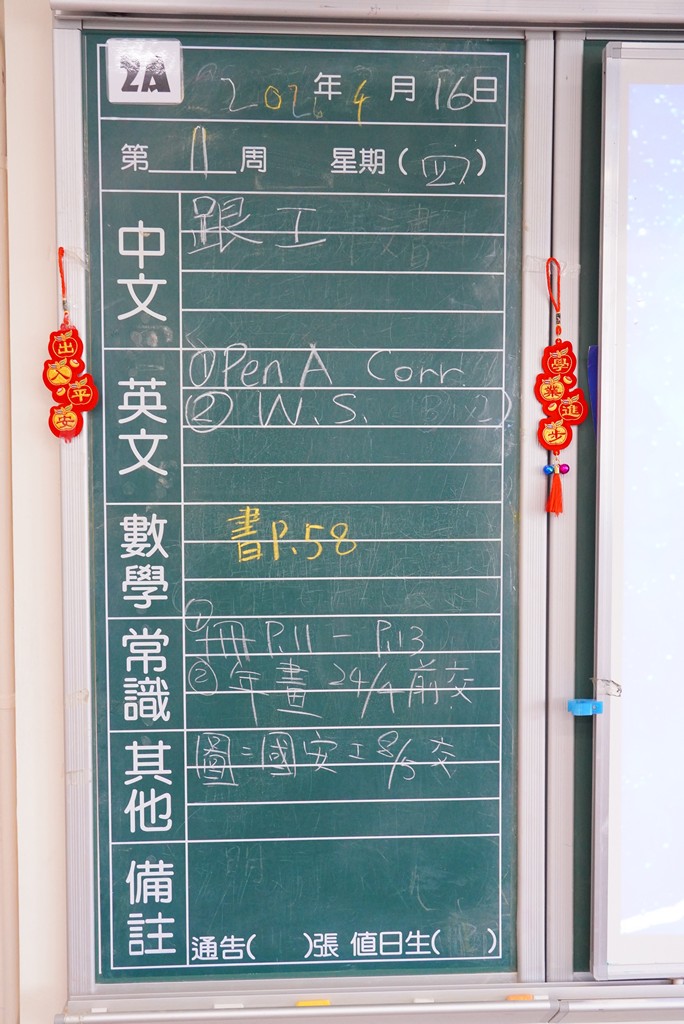 2A
2026年4月16日
第 周 星期(四)
中文
跟工
英文
① Open A Corr.
② W.S.
數學
書P.58
常識
① 冊 P.11 - P.13
② 年畫 24/4前交
其他
圖:國安工 8/5交
備註
通告( )張 值日生( )
出入平安
學業進步